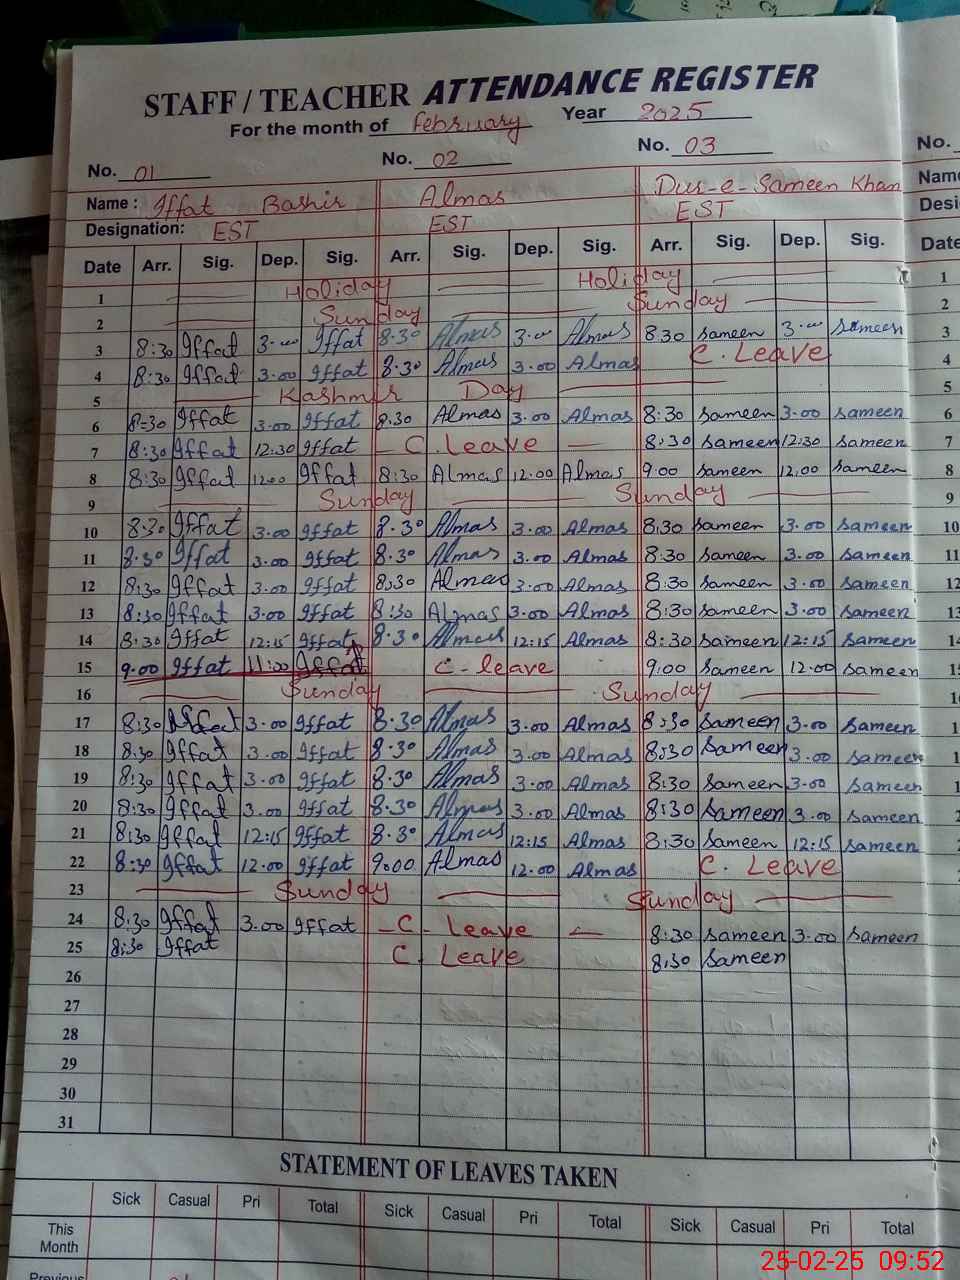 STAFF / TEACHER ATTENDANCE REGISTER
For the month of February Year 2025
No. 01 No. 02 No. 03
Name : Iffat Bashir Almas Dur-e-Sameen Khan
Designation: EST EST EST
Date Arr. Sig. Dep. Sig. Arr. Sig. Dep. Sig. Arr. Sig. Dep. Sig.
1 Holiday Holiday
2 Sunday Sunday
3 8:30 Iffat 3.00 Iffat 8.30 Almas 3.00 Almas 8.30 Sameen 3.00 Sameen
4 8:30 Iffat 3.00 Iffat 8.30 Almas 3.00 Almas C. Leave
5 Kashmir Day
6 8:30 Iffat 3.00 Iffat 8.30 Almas 3.00 Almas 8:30 Sameen 3.00 Sameen
7 8:30 Iffat 12:30 Iffat C. Leave 8:30 Sameen 12:30 Sameen
8 8:30 Iffat 12.00 Iffat 8:30 Almas 12.00 Almas 9:00 Sameen 12.00 Sameen
9 Sunday Sunday
10 8.30 Iffat 3.00 Iffat 8.30 Almas 3.00 Almas 8:30 Sameen 3.00 Sameen
11 8.30 Iffat 3.00 Iffat 8.30 Almas 3.00 Almas 8:30 Sameen 3.00 Sameen
12 8:30 Iffat 3.00 Iffat 8:30 Almas 3.00 Almas 8:30 Sameen 3.00 Sameen
13 8:30 Iffat 3.00 Iffat 8:30 Almas 3.00 Almas 8:30 Sameen 3.00 Sameen
14 8:30 Iffat 12:15 Iffat 8.30 Almas 12:15 Almas 8:30 Sameen 12:15 Sameen
15 9.00 Iffat 11:00 Iffat C - leave 9:00 Sameen 12.00 Sameen
16 Sunday Sunday
17 8:30 Iffat 3.00 Iffat 8.30 Almas 3.00 Almas 8:30 Sameen 3.00 Sameen
18 8:30 Iffat 3.00 Iffat 8.30 Almas 3.00 Almas 8:30 Sameen 3.00 Sameen
19 8:30 Iffat 3.00 Iffat 8.30 Almas 3.00 Almas 8:30 Sameen 3.00 Sameen
20 8:30 Iffat 3.00 Iffat 8.30 Almas 3.00 Almas 8:30 Sameen 3.00 Sameen
21 8:30 Iffat 12:15 Iffat 8.30 Almas 12:15 Almas 8:30 Sameen 12:15 Sameen
22 8:30 Iffat 12.00 Iffat 9:00 Almas 12.00 Almas C. Leave
23 Sunday Sunday
24 8:30 Iffat 3.00 Iffat C - leave 8:30 Sameen 3.00 Sameen
25 8:30 Iffat C. Leave 8:30 Sameen
26
27
28
29
30
31
STATEMENT OF LEAVES TAKEN
Sick Casual Pri Total Sick Casual Pri Total Sick Casual Pri Total
This Month
Previous
25-02-25 09:52